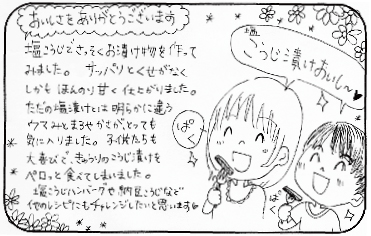 おいしさをありがとうございます
塩こうじでさっそくお漬け物を作って
みました。 サッパリとくせがなく
しかもほんのり甘く仕上がりました。
ただの塩漬けとは明らかに違う
ウマみとまろやかさが、とっても
気に入りました。子供たちも
大喜びで、きゅうりのこうじ漬けを
ペロッと食べてしまいました。
塩こうじハンバーグや納豆こうじなど
他のレシピにもチャレンジしたいと思います
塩
こうじ漬けおいし〜
ぱく
ぱく